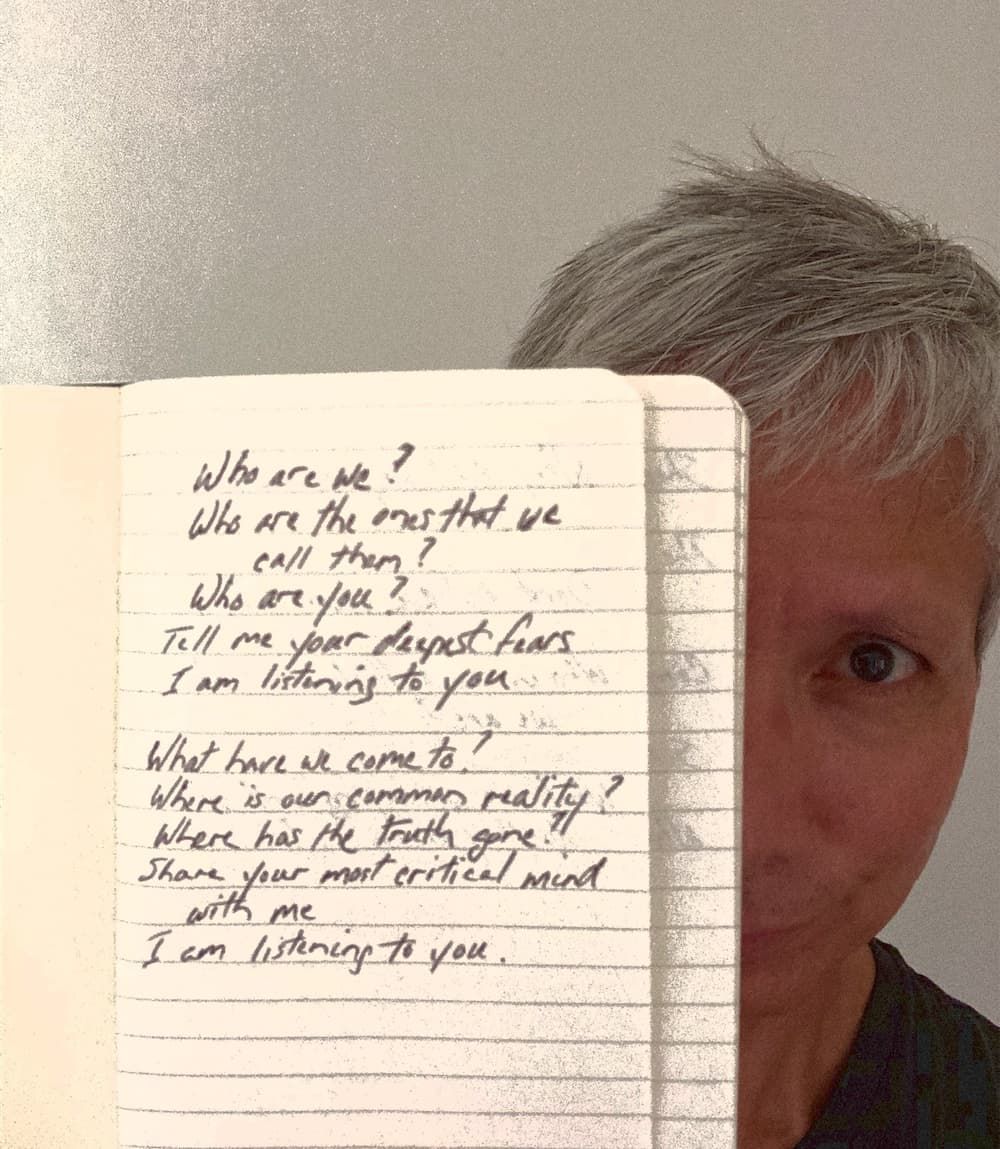 Who are we?
Who are the ones that we
call them?
Who are you?
Tell me your deepest fears
I am listening to you
What have we come to?
Where is our common reality?
Where has the truth gone?
Share your most critical mind
with me
I am listening to you.